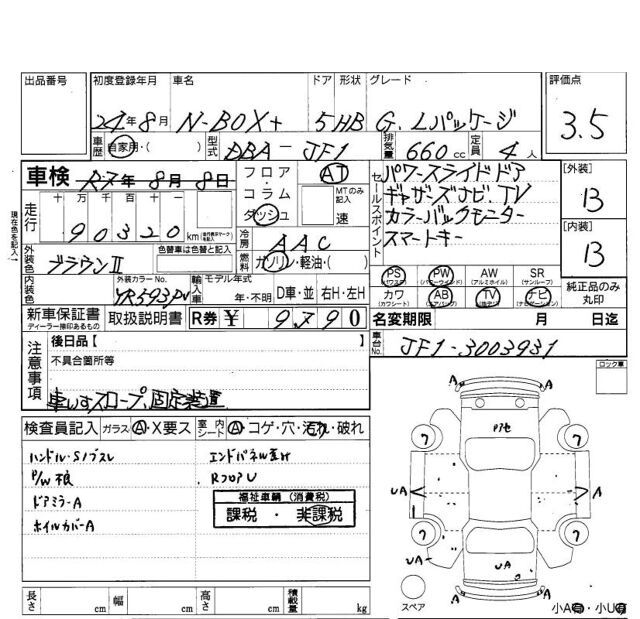 出品番号 初度登録年月 車名 ドア 形状 グレード 評価点
24年8月 N-BOX+ 5HB G.Lパッケージ 3.5
車歴 自家用・( ) 型式 DBA-JF1 排気量 660cc 定員 4人
車検 R7年8月8日 フロア・コラム・ダッシュ AT MTのみ記入 速
現在色を記入→
走行 十万千百十一
90320 km
冷房 AAC
燃料 ガソリン・軽油・( )
外装色 ブラウンⅡ 色替車は色替と記入
内装色 外装カラーNo. YR593P 輸入車 モデル年式 年・不明 D車・並 右H・左H
セールスポイント
パワースライドドア
ギャザーズナビ.TV
カラーバックモニター
スマートキー
[外装] B
[内装] B
PS PW AW SR
カワ AB TV ナビ
純正品のみ丸印
新車保証書 ディーラー捺印あるもの 取扱説明書 R券 ¥ 9790
名変期限 月 日迄
車台No. JF1-3003931
注意事項 後日品【 】
不具合箇所等
車いすスロープ、固定装置
ロック車
検査員記入 ガラス A・X要ス 室内シート A・コゲ・穴・汚れ・破れ
ハンドル・Sノブスレ エンドパネル歪み
P/W根 RフロアU
ドアミラーA
ホイルカバーA
福祉車輌(消費税)
課税・非課税
A A
ワ ワ
UA A
ワ ワ
UA UA
A A
スペア
長さ cm 幅 cm 高さ cm 積載量 kg
小A有・小U有